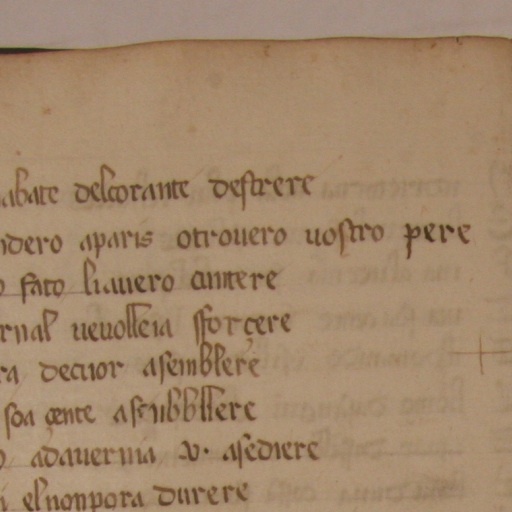 abate delcorante destrere
ndero aparis otrouero uostro pere
o fato liauero cintere
rnal ueuolleia sforçere
ra decuor asemblere
soa çente
o adauerua v. asediere
i elnonpora durere